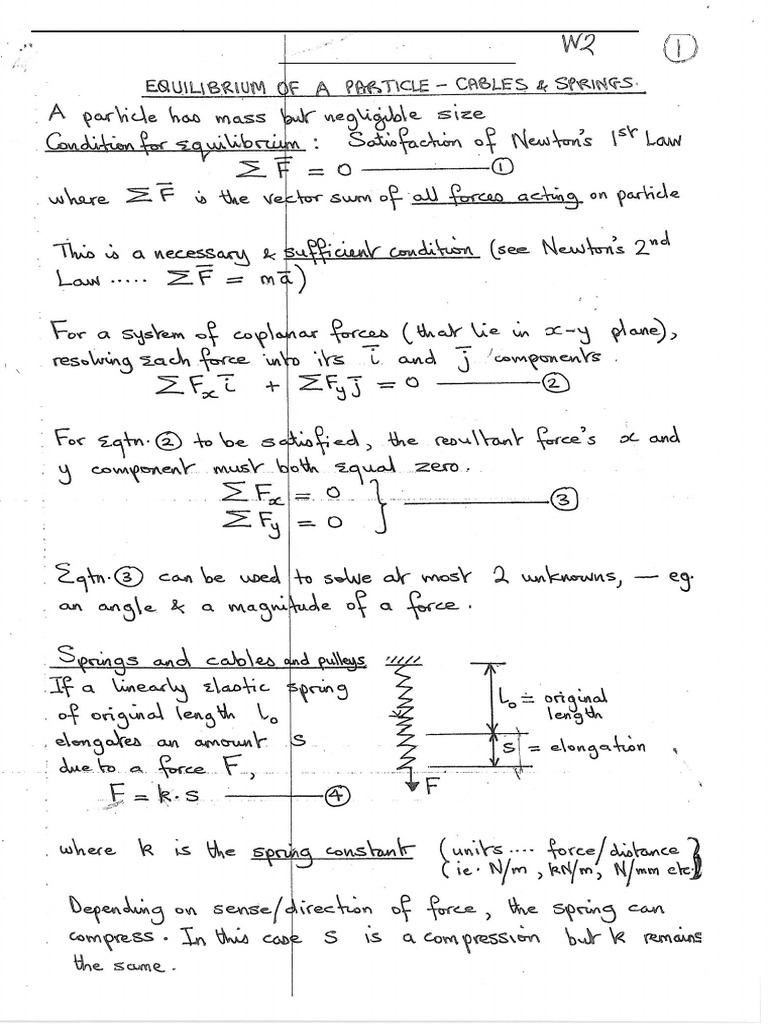 W2 ①
EQUILIBRIUM OF A PARTICLE – CABLES & SPRINGS.
A particle has mass but negligible size
Condition for equilibrium : Satisfaction of Newton's 1st Law
Σ F̄ = 0 ①
where Σ F̄ is the vector sum of all forces acting on particle
This is a necessary & sufficient condition (see Newton's 2nd
Law ..... Σ F̄ = m ā)
For a system of coplanar forces (that lie in x-y plane),
resolving each force into its ī and j̄ components.
Σ Fx ī + Σ Fy j̄ = 0 ②
For Eqtn. ② to be satisfied, the resultant force's x and
y component must both equal zero.
Σ Fx = 0
Σ Fy = 0 } ③
Eqtn. ③ can be used to solve at most 2 unknowns, – eg.
an angle & a magnitude of a force.
Springs and cables and pulleys
If a linearly elastic spring
of original length Lo
elongates an amount s
due to a force F,
F = k.s ④
Lo = original
length
s = elongation
F
where k is the spring constant (units .... force/distance)
(ie. N/m, kN/m, N/mm etc.)
Depending on sense/direction of force, the spring can
compress. In this case s is a compression but k remains
the same.